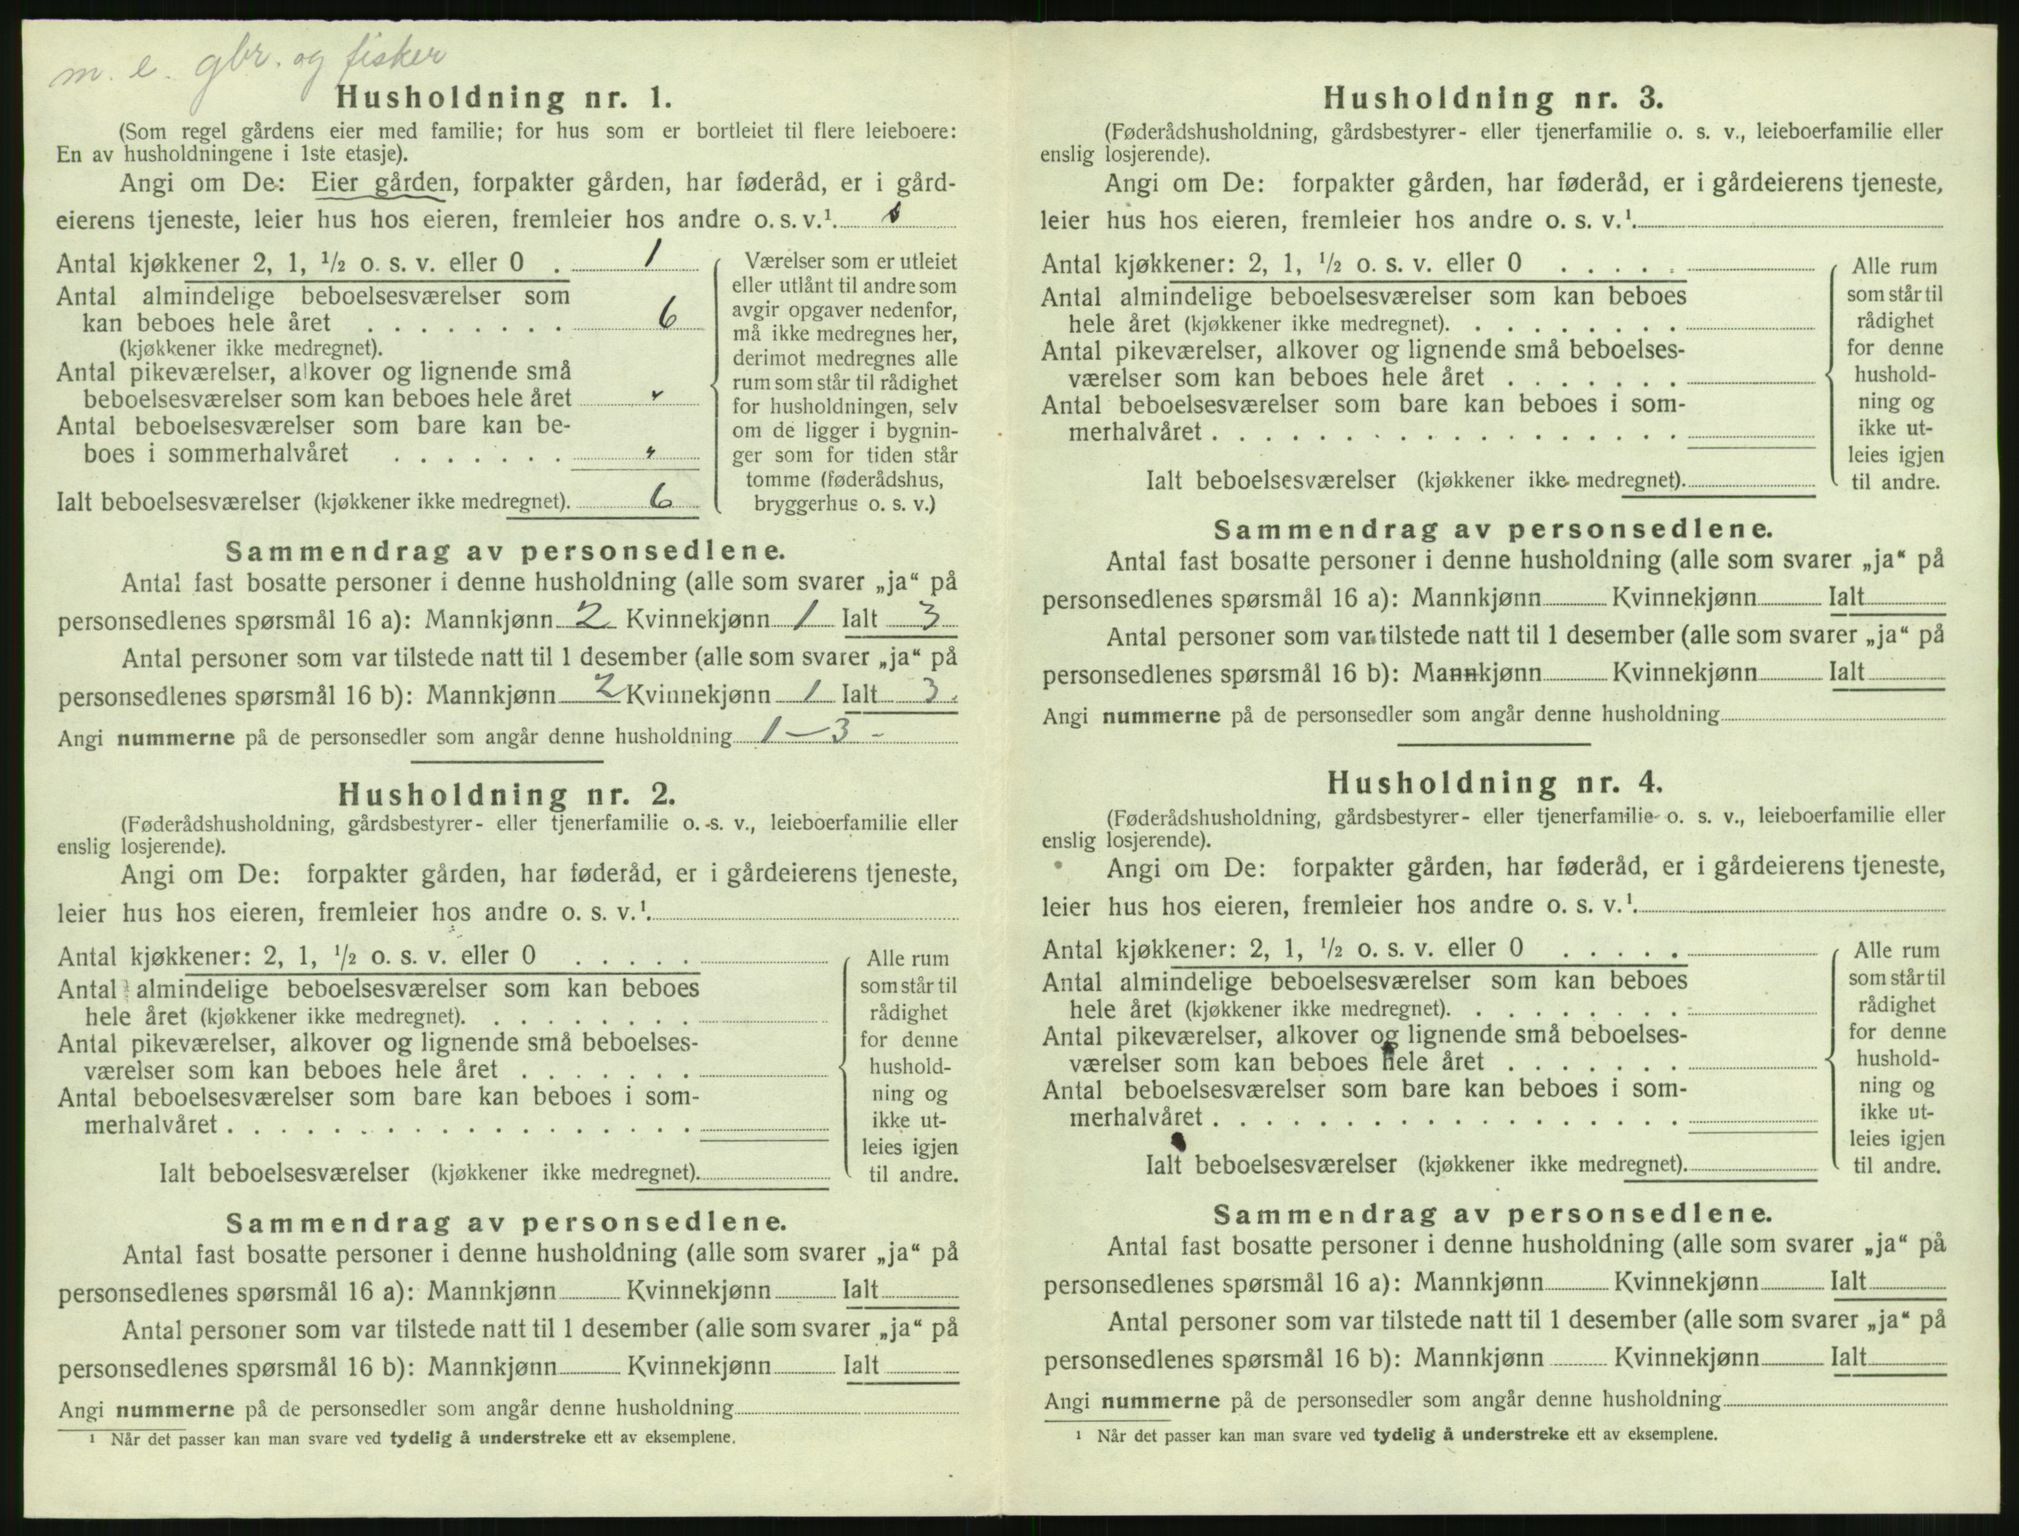 m. e. gbr. og fisker
Husholdning nr. 1.
(Som regel gårdens eier med familie; for hus som er bortleiet til flere leieboere:
En av husholdningene i 1ste etasje).
Angi om De: Eier gården, forpakter gården, har føderåd, er i gård-
eierens tjeneste, leier hus hos eieren, fremleier hos andre o. s. v.¹.
Antal kjøkkener 2, 1, ½ o. s. v. eller 0 . 1
Antal almindelige beboelsesværelser som
kan beboes hele året . . . . . . . . 6
(kjøkkener ikke medregnet).
Antal pikeværelser, alkover og lignende små
beboelsesværelser som kan beboes hele året "
Antal beboelsesværelser som bare kan be-
boes i sommerhalvåret . . . . . . . "
Ialt beboelsesværelser (kjøkkener ikke medregnet). 6
Værelser som er utleiet
eller utlånt til andre som
avgir opgaver nedenfor,
må ikke medregnes her,
derimot medregnes alle
rum som står til rådighet
for husholdningen, selv
om de ligger i bygnin-
ger som for tiden står
tomme (føderådshus,
bryggerhus o. s. v.)
Sammendrag av personsedlene.
Antal fast bosatte personer i denne husholdning (alle som svarer „ja“ på
personsedlenes spørsmål 16 a): Mannkjønn 2 Kvinnekjønn 1 Ialt 3
Antal personer som var tilstede natt til 1 desember (alle som svarer „ja“ på
personsedlenes spørsmål 16 b): Mannkjønn 2 Kvinnekjønn 1 Ialt 3.
Angi nummerne på de personsedler som angår denne husholdning 1-3 -
Husholdning nr. 2.
(Føderådshusholdning, gårdsbestyrer- eller tjenerfamilie o. s. v., leieboerfamilie eller
enslig losjerende).
Angi om De: forpakter gården, har føderåd, er i gårdeierens tjeneste,
leier hus hos eieren, fremleier hos andre o. s. v.¹.
Antal kjøkkener: 2, 1, ½ o. s. v. eller 0 . . . . .
Antal almindelige beboelsesværelser som kan beboes
hele året (kjøkkener ikke medregnet). . . . . . . . .
Antal pikeværelser, alkover og lignende små beboelses-
værelser som kan beboes hele året . . . . . . .
Antal beboelsesværelser som bare kan beboes i som-
merhalvåret . . . . . . . . . . . . . . . . . .
Ialt beboelsesværelser (kjøkkener ikke medregnet).
Alle rum
som står til
rådighet
for denne
hushold-
ning og
ikke ut-
leies igjen
til andre.
Sammendrag av personsedlene.
Antal fast bosatte personer i denne husholdning (alle som svarer „ja“ på
personsedlenes spørsmål 16 a): Mannkjønn Kvinnekjønn Ialt
Antal personer som var tilstede natt til 1 desember (alle som svarer „ja“ på
personsedlenes spørsmål 16 b): Mannkjønn Kvinnekjønn Ialt
Angi nummerne på de personsedler som angår denne husholdning
¹ Når det passer kan man svare ved tydelig å understreke ett av eksemplene.
Husholdning nr. 3.
(Føderådshusholdning, gårdsbestyrer- eller tjenerfamilie o. s. v., leieboerfamilie eller
enslig losjerende).
Angi om De: forpakter gården, har føderåd, er i gårdeierens tjeneste,
leier hus hos eieren, fremleier hos andre o. s. v.¹.
Antal kjøkkener: 2, 1, ½ o. s. v. eller 0 . . . . .
Antal almindelige beboelsesværelser som kan beboes
hele året (kjøkkener ikke medregnet). . . . . . . . .
Antal pikeværelser, alkover og lignende små beboelses-
værelser som kan beboes hele året . . . . . . .
Antal beboelsesværelser som bare kan beboes i som-
merhalvåret . . . . . . . . . . . . . . . . . .
Ialt beboelsesværelser (kjøkkener ikke medregnet).
Alle rum
som står til
rådighet
for denne
hushold-
ning og
ikke ut-
leies igjen
til andre.
Sammendrag av personsedlene.
Antal fast bosatte personer i denne husholdning (alle som svarer „ja“ på
personsedlenes spørsmål 16 a): Mannkjønn Kvinnekjønn Ialt
Antal personer som var tilstede natt til 1 desember (alle som svarer „ja“ på
personsedlenes spørsmål 16 b): Mannkjønn Kvinnekjønn Ialt
Angi nummerne på de personsedler som angår denne husholdning
Husholdning nr. 4.
(Føderådshusholdning, gårdsbestyrer- eller tjenerfamilie o. s. v., leieboerfamilie eller
enslig losjerende).
Angi om De: forpakter gården, har føderåd, er i gårdeierens tjeneste,
leier hus hos eieren, fremleier hos andre o. s. v.¹.
Antal kjøkkener: 2, 1, ½ o. s. v. eller 0 . . . . .
Antal almindelige beboelsesværelser som kan beboes
hele året (kjøkkener ikke medregnet). . . . . . . . .
Antal pikeværelser, alkover og lignende små beboelses-
værelser som kan beboes hele året . . . . . . .
Antal beboelsesværelser som bare kan beboes i som-
merhalvåret . . . . . . . . . . . . . . . . . .
Ialt beboelsesværelser (kjøkkener ikke medregnet).
Alle rum
som står til
rådighet
for denne
hushold-
ning og
ikke ut-
leies igjen
til andre.
Sammendrag av personsedlene.
Antal fast bosatte personer i denne husholdning (alle som svarer „ja“ på
personsedlenes spørsmål 16 a): Mannkjønn Kvinnekjønn Ialt
Antal personer som var tilstede natt til 1 desember (alle som svarer „ja“ på
personsedlenes spørsmål 16 b): Mannkjønn Kvinnekjønn Ialt
Angi nummerne på de personsedler som angår denne husholdning
¹ Når det passer kan man svare ved tydelig å understreke ett av eksemplene.